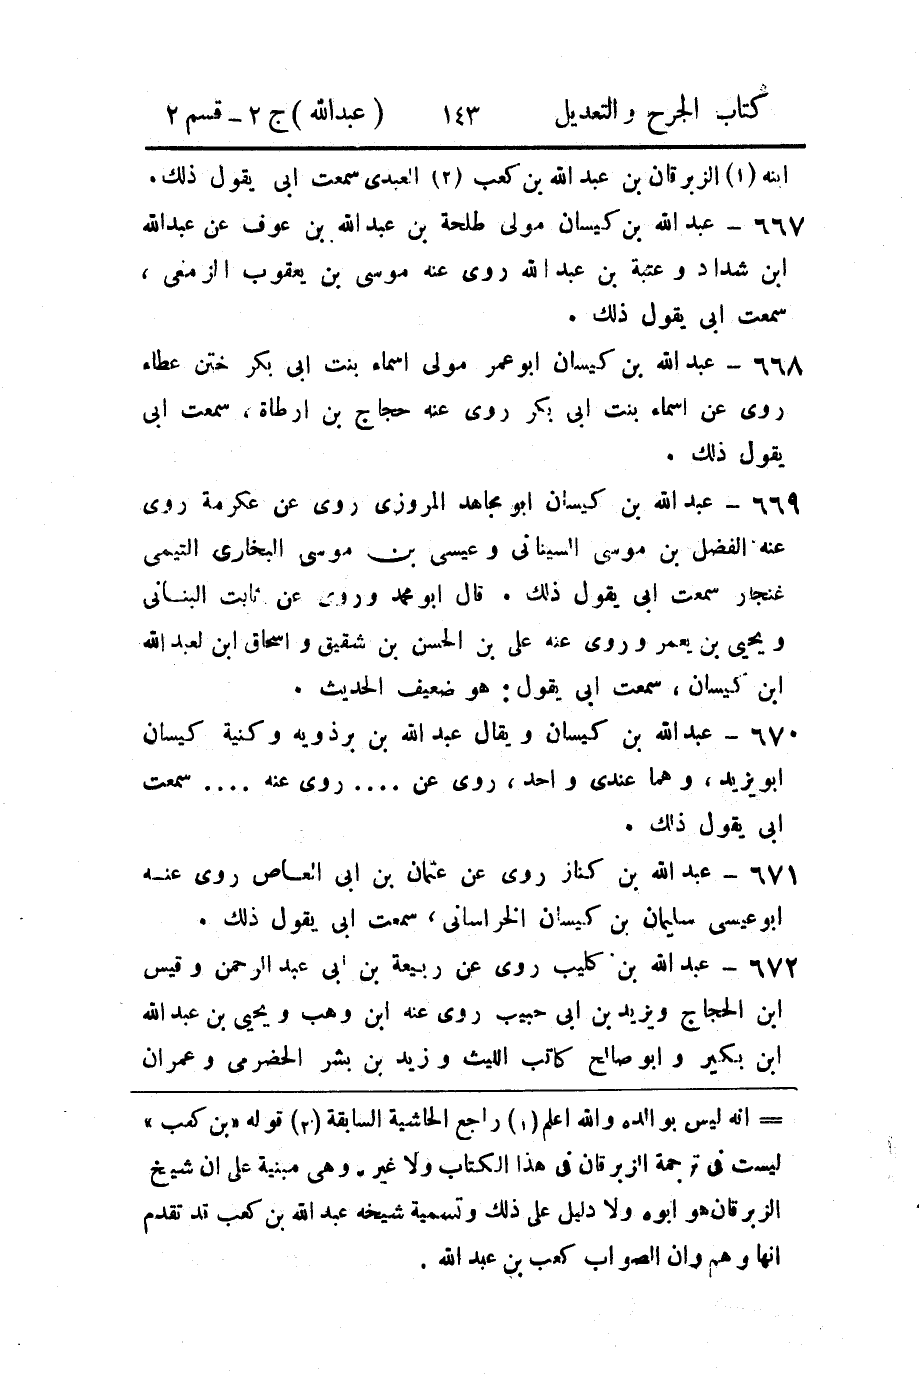 كتاب الجرح والتعديل ١٤٣ (عبدالله) ج ٢ - قسم ٢
ابنه (١) الزبرقان بن عبد الله بن كعب (٢) العبدى سمعت ابى يقول ذلك.
٦٦٧ - عبد الله بن كيسان مولى طلحة بن عبد الله بن عوف عن عبدالله
ابن شداد و عتبة بن عبد الله روى عنه موسى بن يعقوب الزمعى ،
سمعت ابى يقول ذلك .
٦٦٨ - عبد الله بن كيسان ابو عمر مولى اسماء بنت ابى بكر ختن عطاء
روى عن اسماء بنت ابى بكر روى عنه حجاج بن ارطاة ، سمعت ابى
يقول ذلك .
٦٦٩ - عبد الله بن كيسان ابو مجاهد المروزى روى عن عكرمة روى
عنه الفضل بن موسى السينانى و عيسى بن موسى البخارى التيمى
غنجار سمعت ابى يقول ذلك . قال ابو محمد وروى عن ثابت البنانى
و يحيى بن يعمر و روى عنه على بن الحسن بن شقيق و اسحاق ابن لعبد الله
ابن كيسان ، سمعت ابى يقول : هو ضعيف الحديث .
٦٧٠ - عبد الله بن كيسان و يقال عبد الله بن برذويه و كنية كيسان
ابو يزيد ، و هما عندى و احد ، روى عن .... روى عنه .... سمعت
ابى يقول ذلك .
٦٧١ - عبد الله بن كناز روى عن عثمان بن ابى العاص روى عنه
ابو عيسى سليمان بن كيسان الخراسانى ، سمعت ابى يقول ذلك .
٦٧٢ - عبد الله بن كليب روى عن ربيعة بن ابى عبد الرحمن و قيس
ابن الحجاج و يزيد بن ابى حبيب روى عنه ابن وهب و يحيى بن عبد الله
ابن بكير و ابو صالح كاتب الليث و زيد بن بشر الحضرمى و عمران
= انه ليس بوالده والله اعلم (١) راجع الحاشية السابقة (٢) قوله «بن كعب»
ليست فى ترجمة الزبرقان فى هذا الكتاب ولا غيره . وهى مبنية على ان شيخ
الزبرقان هو ابوه ولا دليل على ذلك وتسمية شيخه عبد الله بن كعب قد تقدم
انها وهم وان الصواب كعب بن عبد الله .